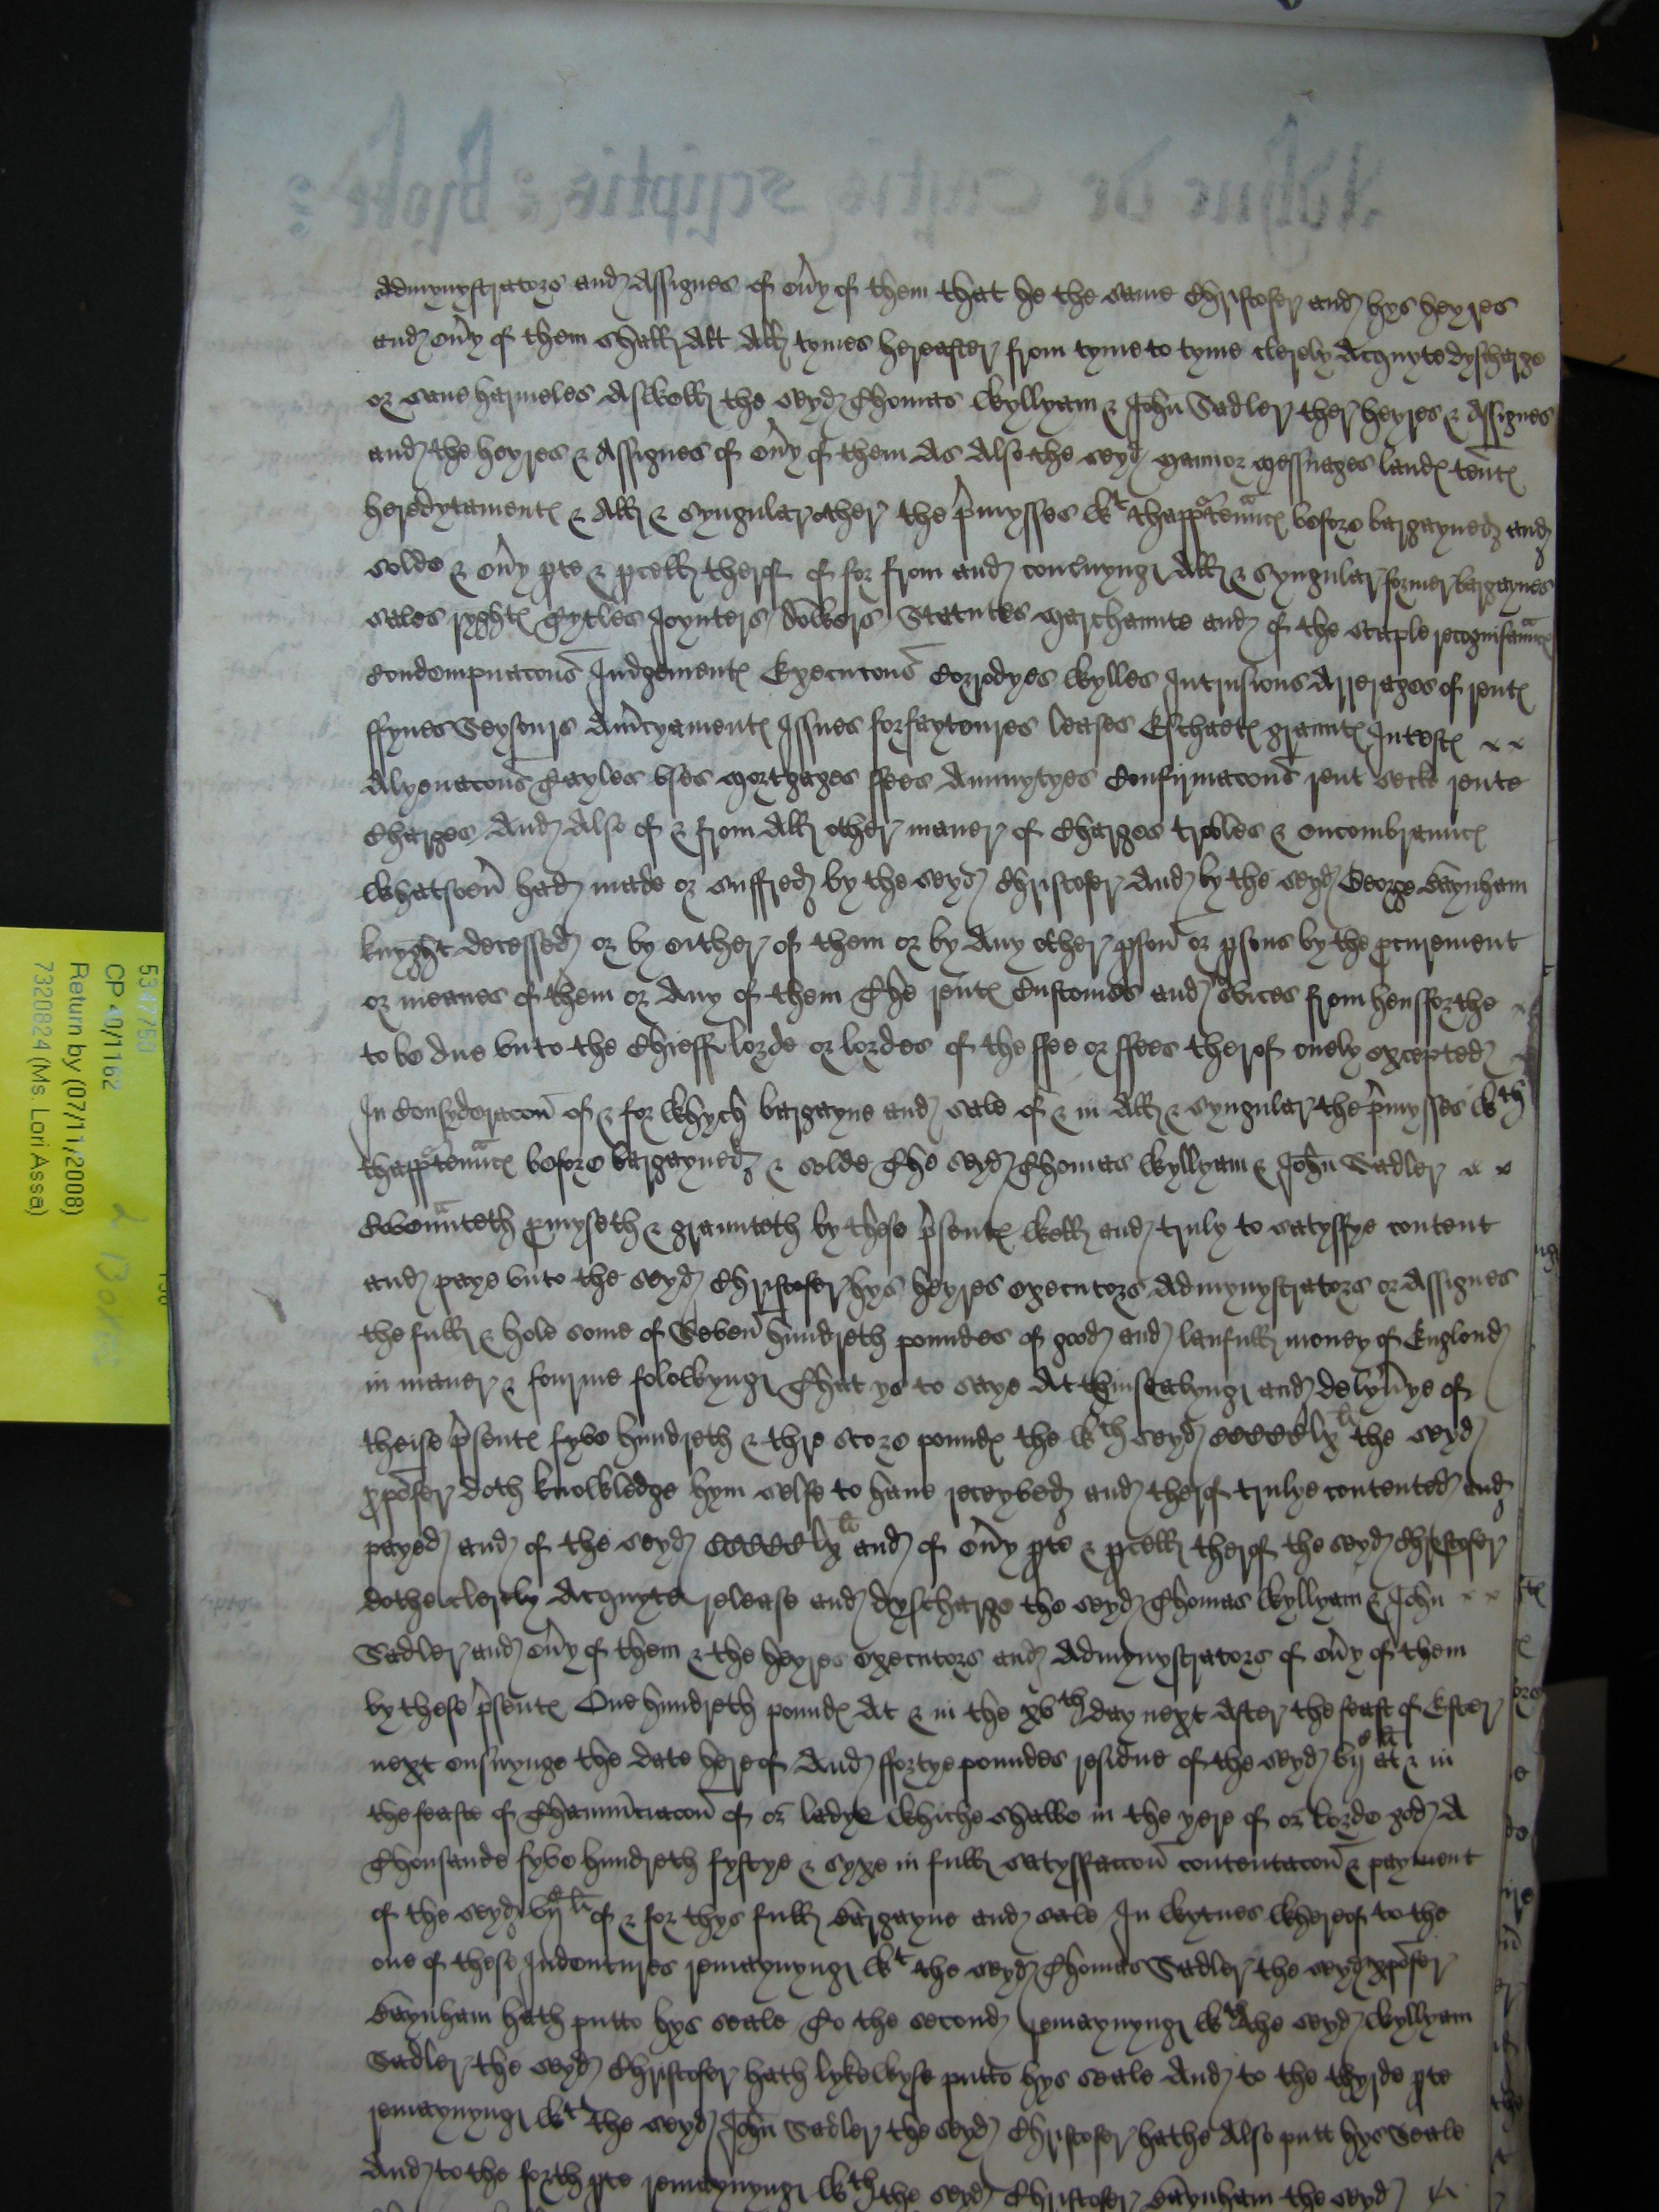 admynystrators and Assignes of ev'y of them that he the same Christofer and hys heyres
and ev'y of them shall Att All tymes hereafter from tyme to tyme clerely Acquyte dyscharge
or save harmeles Aswell the seyd Thomas Wyllyam & John Sadler ther heyres & Assignes
and the heyres & Assignes of ev'y of them As Also the seyd mannor messuages land(es) ten't(es)
heredytament(es) & All & syngular other the p'mysses wt thapp'tenunc(es) before bargayned and
solde & ev'y p(ar)te & p(ar)cell therof of for from and conc'nyng All & syngular former bargaynes
sales ryght(es) Tytles Joynters dowers Statutes marchaunte and of the staple recognisaunc(es)
Condempnacons Judgement(es) Execucons Corrodyes Wylles Intrusions Arrerages of rent(es)
ffynes Seysours Am'cyament(es) Issues forfaytoures leases Eschaet(es) graunt(es) Int'est(es)
Alyenacons Tayles Uses mortgages ffees Annuytyes Confirmacons rent secke rente
Charges And Also of & from All other maner of Charges trobles & encombraunc(es)
Whatsoev' had made or suffred by the seyd Christofer And by the seyd George Baynham
knyght decessed or by either of them or by Any other p(er)son or p(er)sons by the p(ro)curement
or meanes of them or Any of them The rent(es) Customes and s'vices from hensforthe
to be due unto the Chieff lorde or lordes of the ffee or ffees therof onely excepted
In Consyderacon of & for Whych bargayne and sale of & in All & syngular the p'mysses wth
thapp'tenunc(es) before bargayned & solde The seyd Thomas Wyllyam & John Sadler
Covenunteth p(ro)myseth & graunteth by these p'sent(es) well and truly to satysffye content
and paye unto the seyd Christofer hys heyres executors Admynystrators or Assignes
the full & hole some of Seven hundreth poundes of good and laufull money of Englond
in maner & fourme folowyng That ys to saye At thinsealyng and delyv'ye of
theise p'sent(es) fyve hundreth & thre score pound(es) the wth seyd CCCCClx li the seyd
xpofer doth knowledge hym selfe to have receyved and therof trulye contented and
payed and of the seyd CCCCClx li and of ev'y p(ar)te & p(ar)cell therof the seyd Christofer
dothe clerely Acquyte release and dyscharge the seyd Thomas Wyllyam & John
Sadler and ev'y of them & the heyres executors and Admynystrators of ev'y of them
by these p'sent(es) One hundreth pound(es) At & in the xvth day next After the feast of Ester
next ensuynge the date hereof And ffortye poundes residue of the seyd vij c li at & in
the feaste of Thannunciacon of or ladye Whiche shalbe in the yere of or lorde god A
Thousande fyve hundreth fyftye & syxe in full satysffaccon contentacon & payment
of the seyd vij c li of & for thys full bargayne and sale In Wytnes Whereof to the
one of these Indentures remaynyng wt the seyd Thomas Sadler the seyd xpofer
Baynham hath putto hys seale To the second remaynyng wth the seyd Wyllyam
Sadler the seyd Christofer hath lykewyse putto hys seale And to the thyrde p(ar)te
remaynyng wt the seyd John Sadler the seyd Christofer hathe Also putt hys Seale
And to the forth p(ar)te remaynyng wth the seyd Christofer Baynham the seyd
5347750
CP 40/1162
Return by (07/11/2008)
7320824 (Ms. Lori Assa)